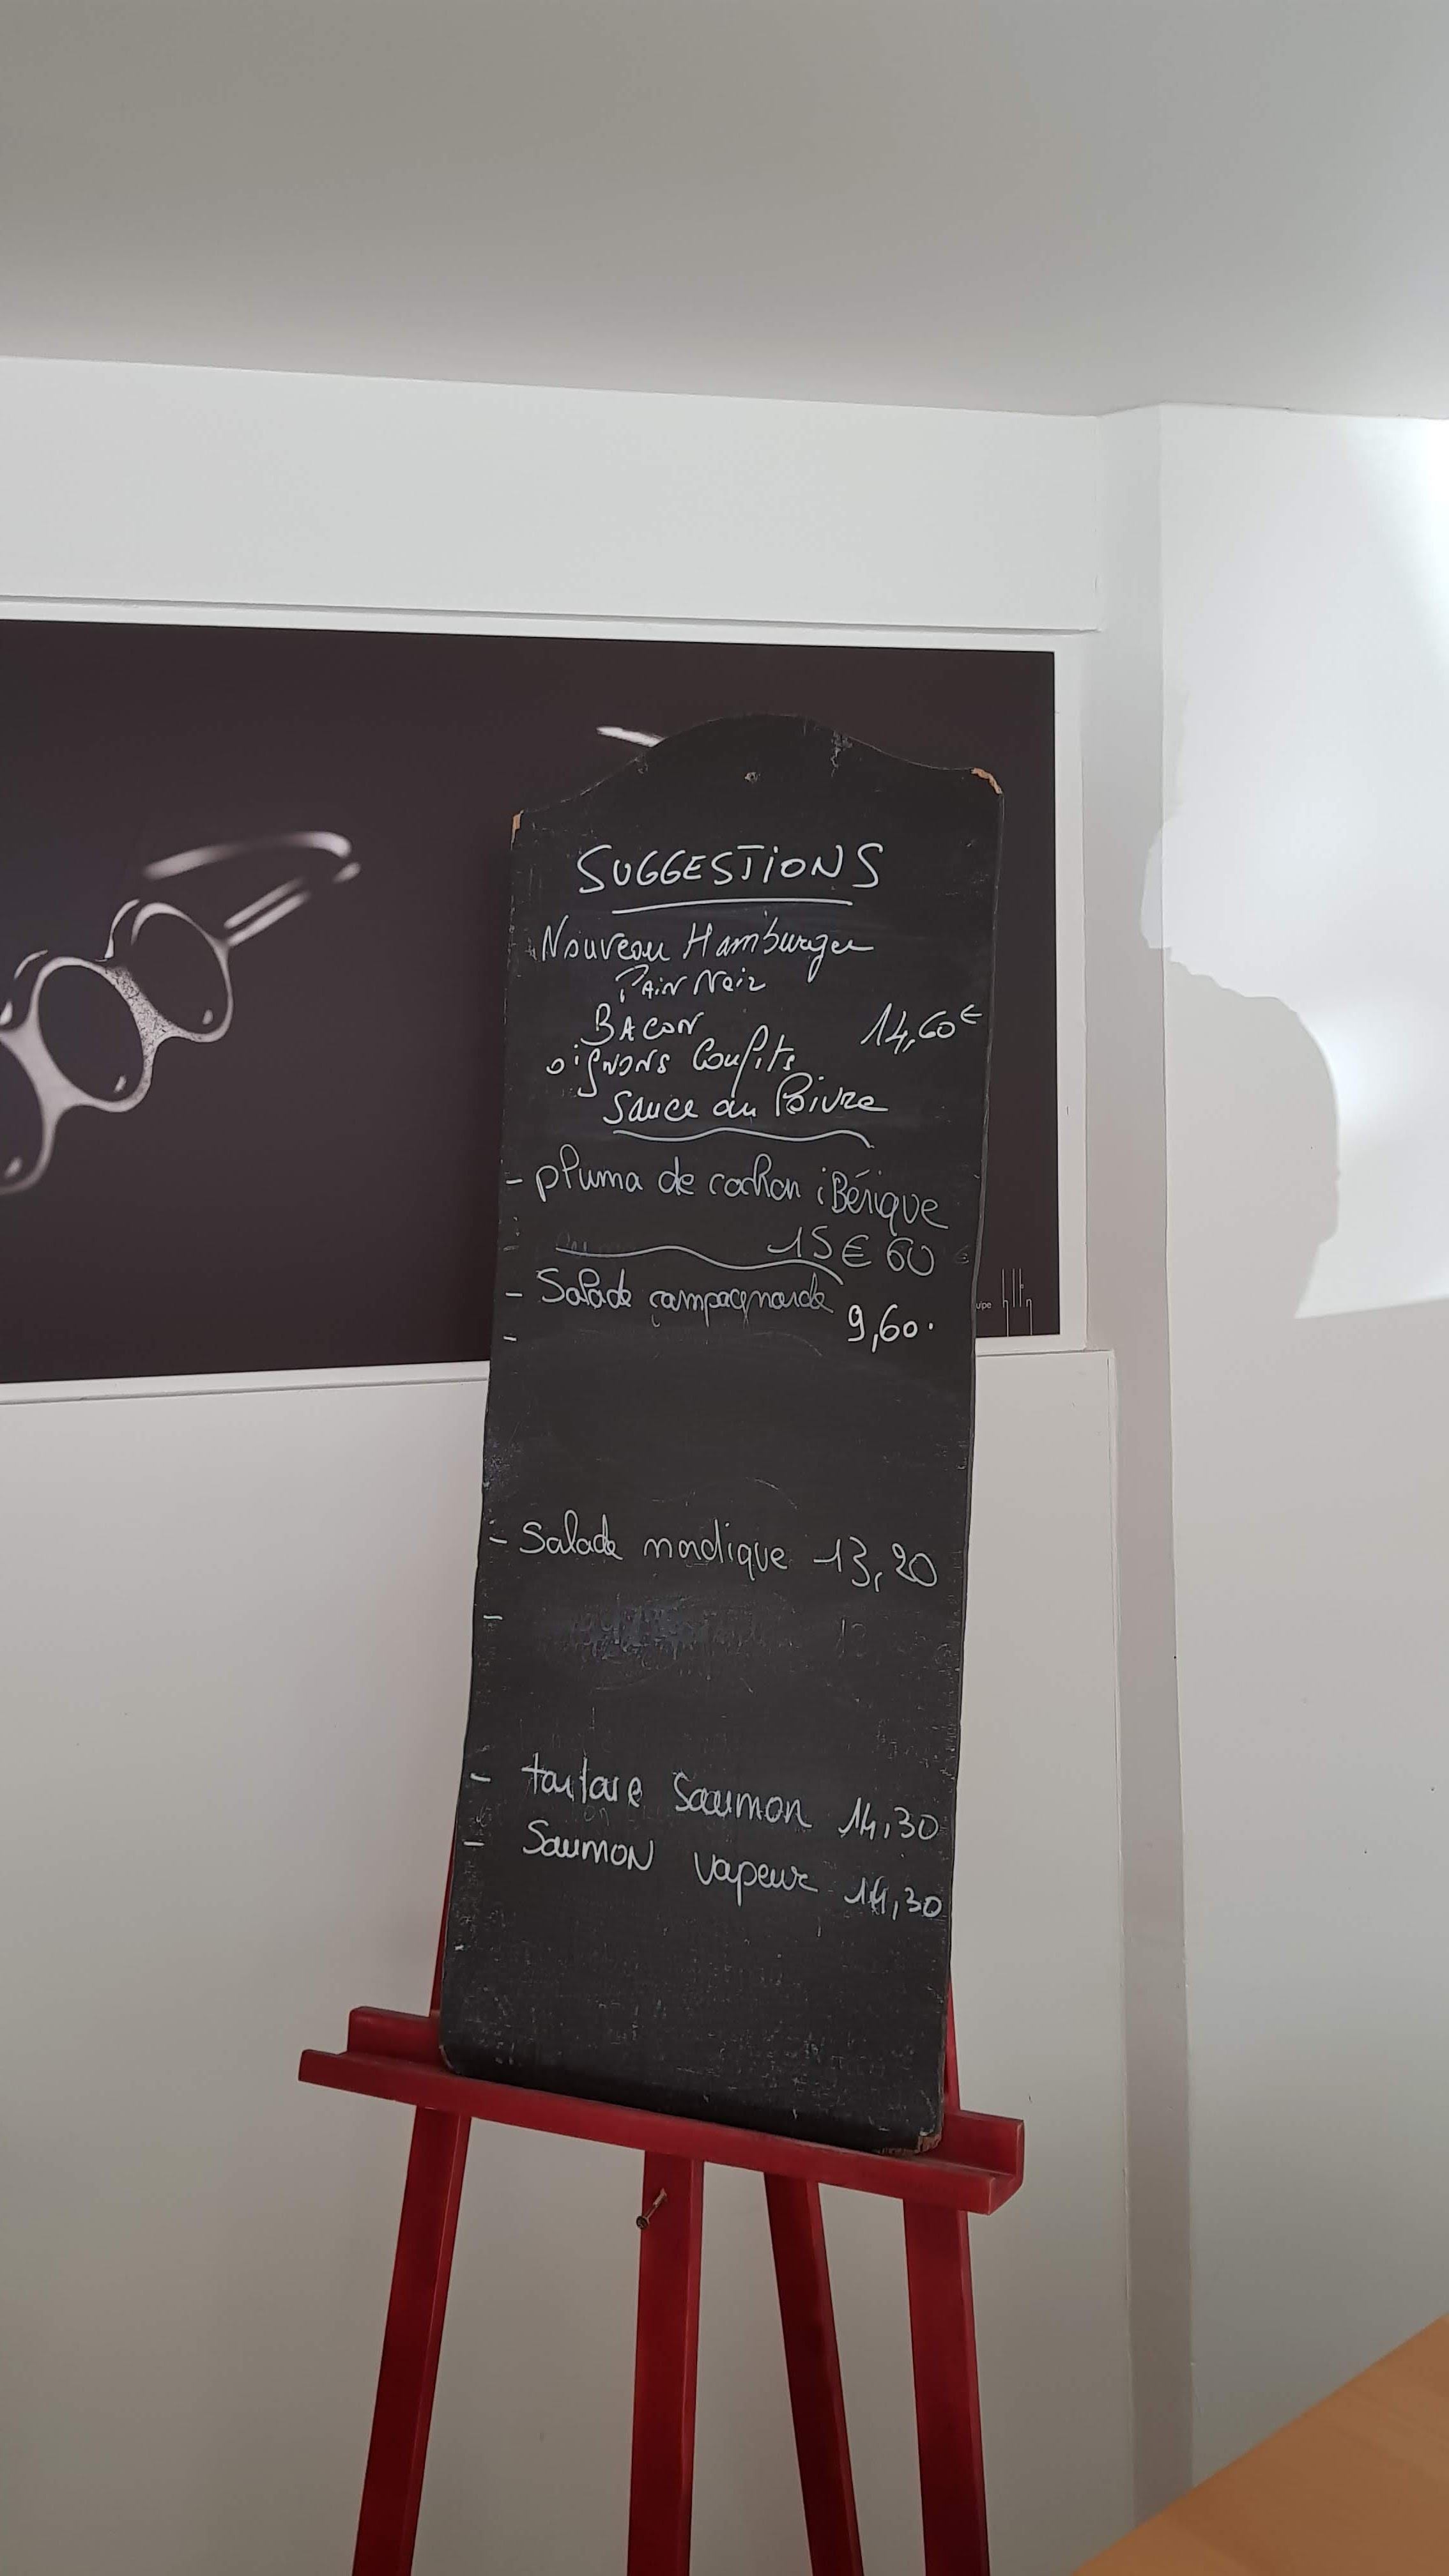 SUGGESTIONS
Nouveau Hamburger
PAiN Noir
BACON
14,60€
oignons Confits
Sauce au Poivre
- pluma de cochon iBérique
15€60
- Salade campagnarde
9,60.
-
- Salade nordique 13,20
-
- tartare Saumon 14,30
- Saumon vapeur 14,30